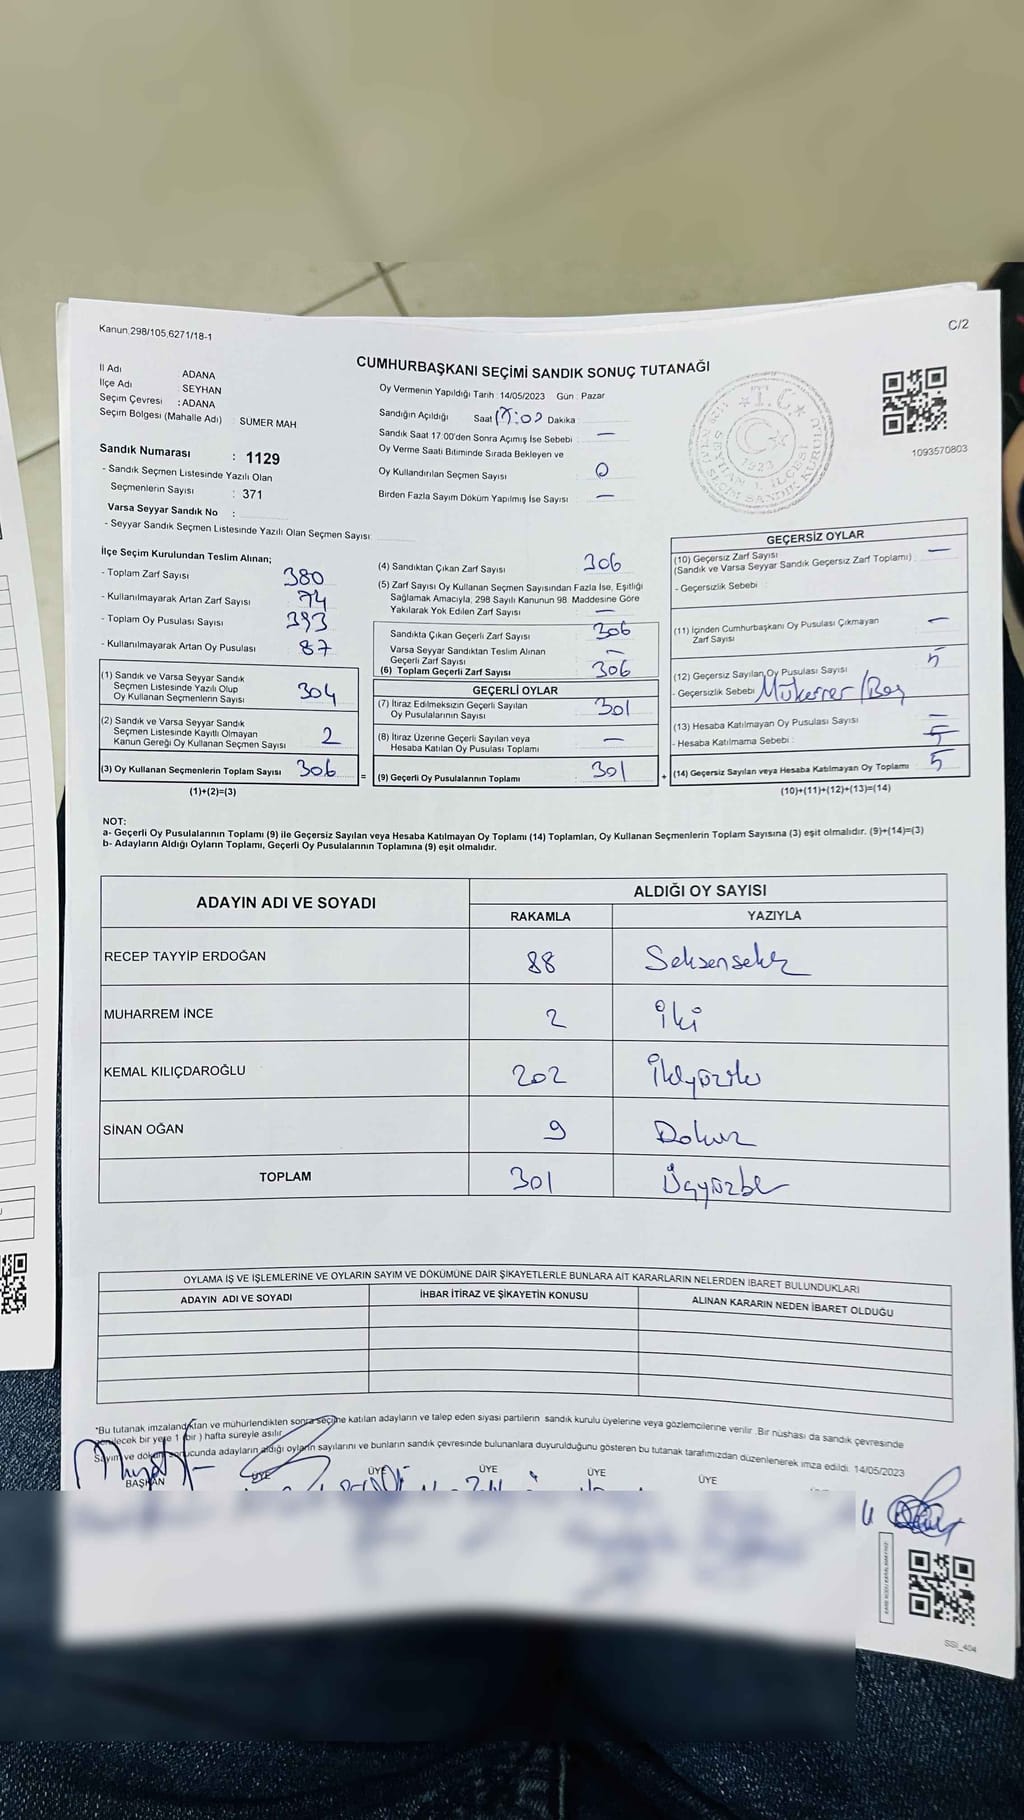 Kanun,298/105,6271/18-1
C/2
CUMHURBAŞKANI SEÇİMİ SANDIK SONUÇ TUTANAĞI
İl Adı ADANA
İlçe Adı : SEYHAN
Seçim Çevresi : ADANA
Seçim Bölgesi (Mahalle Adı) : SÜMER MAH
Sandık Numarası : 1129
- Sandık Seçmen Listesinde Yazılı Olan
Seçmenlerin Sayısı : 371
Varsa Seyyar Sandık No :
- Seyyar Sandık Seçmen Listesinde Yazılı Olan Seçmen Sayısı:
Oy Vermenin Yapıldığı Tarih : 14/05/2023 Gün : Pazar
Sandığın Açıldığı Saat Dakika :
Sandık Saat 17:00'den Sonra Açılmış İse Sebebi : —
Oy Verme Saati Bitiminde Sırada Bekleyen ve
Oy Kullandırılan Seçmen Sayısı : 0
Birden Fazla Sayım Döküm Yapılmış İse Sayısı : —
1093570803
İlçe Seçim Kurulundan Teslim Alınan;
- Toplam Zarf Sayısı : 380
- Kullanılmayarak Artan Zarf Sayısı : 74
- Toplam Oy Pusulası Sayısı : 393
- Kullanılmayarak Artan Oy Pusulası : 87
(1) Sandık ve Varsa Seyyar Sandık
Seçmen Listesinde Yazılı Olup
Oy Kullanan Seçmenlerin Sayısı : 304
(2) Sandık ve Varsa Seyyar Sandık
Seçmen Listesinde Kayıtlı Olmayan
Kanun Gereği Oy Kullanan Seçmen Sayısı : 2
(3) Oy Kullanan Seçmenlerin Toplam Sayısı : 306
(1)+(2)=(3)
=
(4) Sandıktan Çıkan Zarf Sayısı : 306
(5) Zarf Sayısı Oy Kullanan Seçmen Sayısından Fazla İse, Eşitliği
Sağlamak Amacıyla, 298 Sayılı Kanunun 98. Maddesine Göre
Yakılarak Yok Edilen Zarf Sayısı : —
Sandıkta Çıkan Geçerli Zarf Sayısı : 306
Varsa Seyyar Sandıktan Teslim Alınan
Geçerli Zarf Sayısı : —
(6) Toplam Geçerli Zarf Sayısı : 306
GEÇERLİ OYLAR
(7) İtiraz Edilmeksizin Geçerli Sayılan
Oy Pusulalarının Sayısı : 301
(8) İtiraz Üzerine Geçerli Sayılan veya
Hesaba Katılan Oy Pusulası Toplamı : —
(9) Geçerli Oy Pusulalarının Toplamı : 301
+
GEÇERSİZ OYLAR
(10) Geçersiz Zarf Sayısı
(Sandık ve Varsa Seyyar Sandık Geçersiz Zarf Toplamı) : —
- Geçersizlik Sebebi :
(11) İçinden Cumhurbaşkanı Oy Pusulası Çıkmayan
Zarf Sayısı : —
(12) Geçersiz Sayılan Oy Pusulası Sayısı : 5
- Geçersizlik Sebebi : Mükerrer/Boş
(13) Hesaba Katılmayan Oy Pusulası Sayısı : —
- Hesaba Katılmama Sebebi :
(14) Geçersiz Sayılan veya Hesaba Katılmayan Oy Toplamı : 5
(10)+(11)+(12)+(13)=(14)
NOT:
a- Geçerli Oy Pusulalarının Toplamı (9) ile Geçersiz Sayılan veya Hesaba Katılmayan Oy Toplamı (14) Toplamları, Oy Kullanan Seçmenlerin Toplam Sayısına (3) eşit olmalıdır. (9)+(14)=(3)
b- Adayların Aldığı Oyların Toplamı, Geçerli Oy Pusulalarının Toplamına (9) eşit olmalıdır.
ADAYIN ADI VE SOYADI
ALDIĞI OY SAYISI
RAKAMLA YAZIYLA
RECEP TAYYİP ERDOĞAN 88 Seksensekiz
MUHARREM İNCE 2 İki
KEMAL KILIÇDAROĞLU 202 İkiyüziki
SİNAN OĞAN 9 Dokuz
TOPLAM 301 Üçyüzbir
OYLAMA İŞ VE İŞLEMLERİNE VE OYLARIN SAYIM VE DÖKÜMÜNE DAİR ŞİKAYETLERLE BUNLARA AİT KARARLARIN NELERDEN İBARET BULUNDUKLARI
ADAYIN ADI VE SOYADI İHBAR İTİRAZ VE ŞİKAYETİN KONUSU ALINAN KARARIN NEDEN İBARET OLDUĞU
*Bu tutanak imzalandıktan ve mühürlendikten sonra seçime katılan adayların ve talep eden siyasi partilerin sandık kurulu üyelerine veya gözlemcilerine verilir. Bir nüshası da sandık çevresinde
bir yere 1 (bir) hafta süreyle asılır.
Sayım ve döküm sonucunda adayların aldığı oyların sayılarını ve bunların sandık çevresinde bulunanlara duyurulduğunu gösteren bu tutanak tarafımızdan düzenlenerek imza edildi. 14/05/2023
BAŞKAN ÜYE ÜYE ÜYE ÜYE ÜYE
SSİ_404